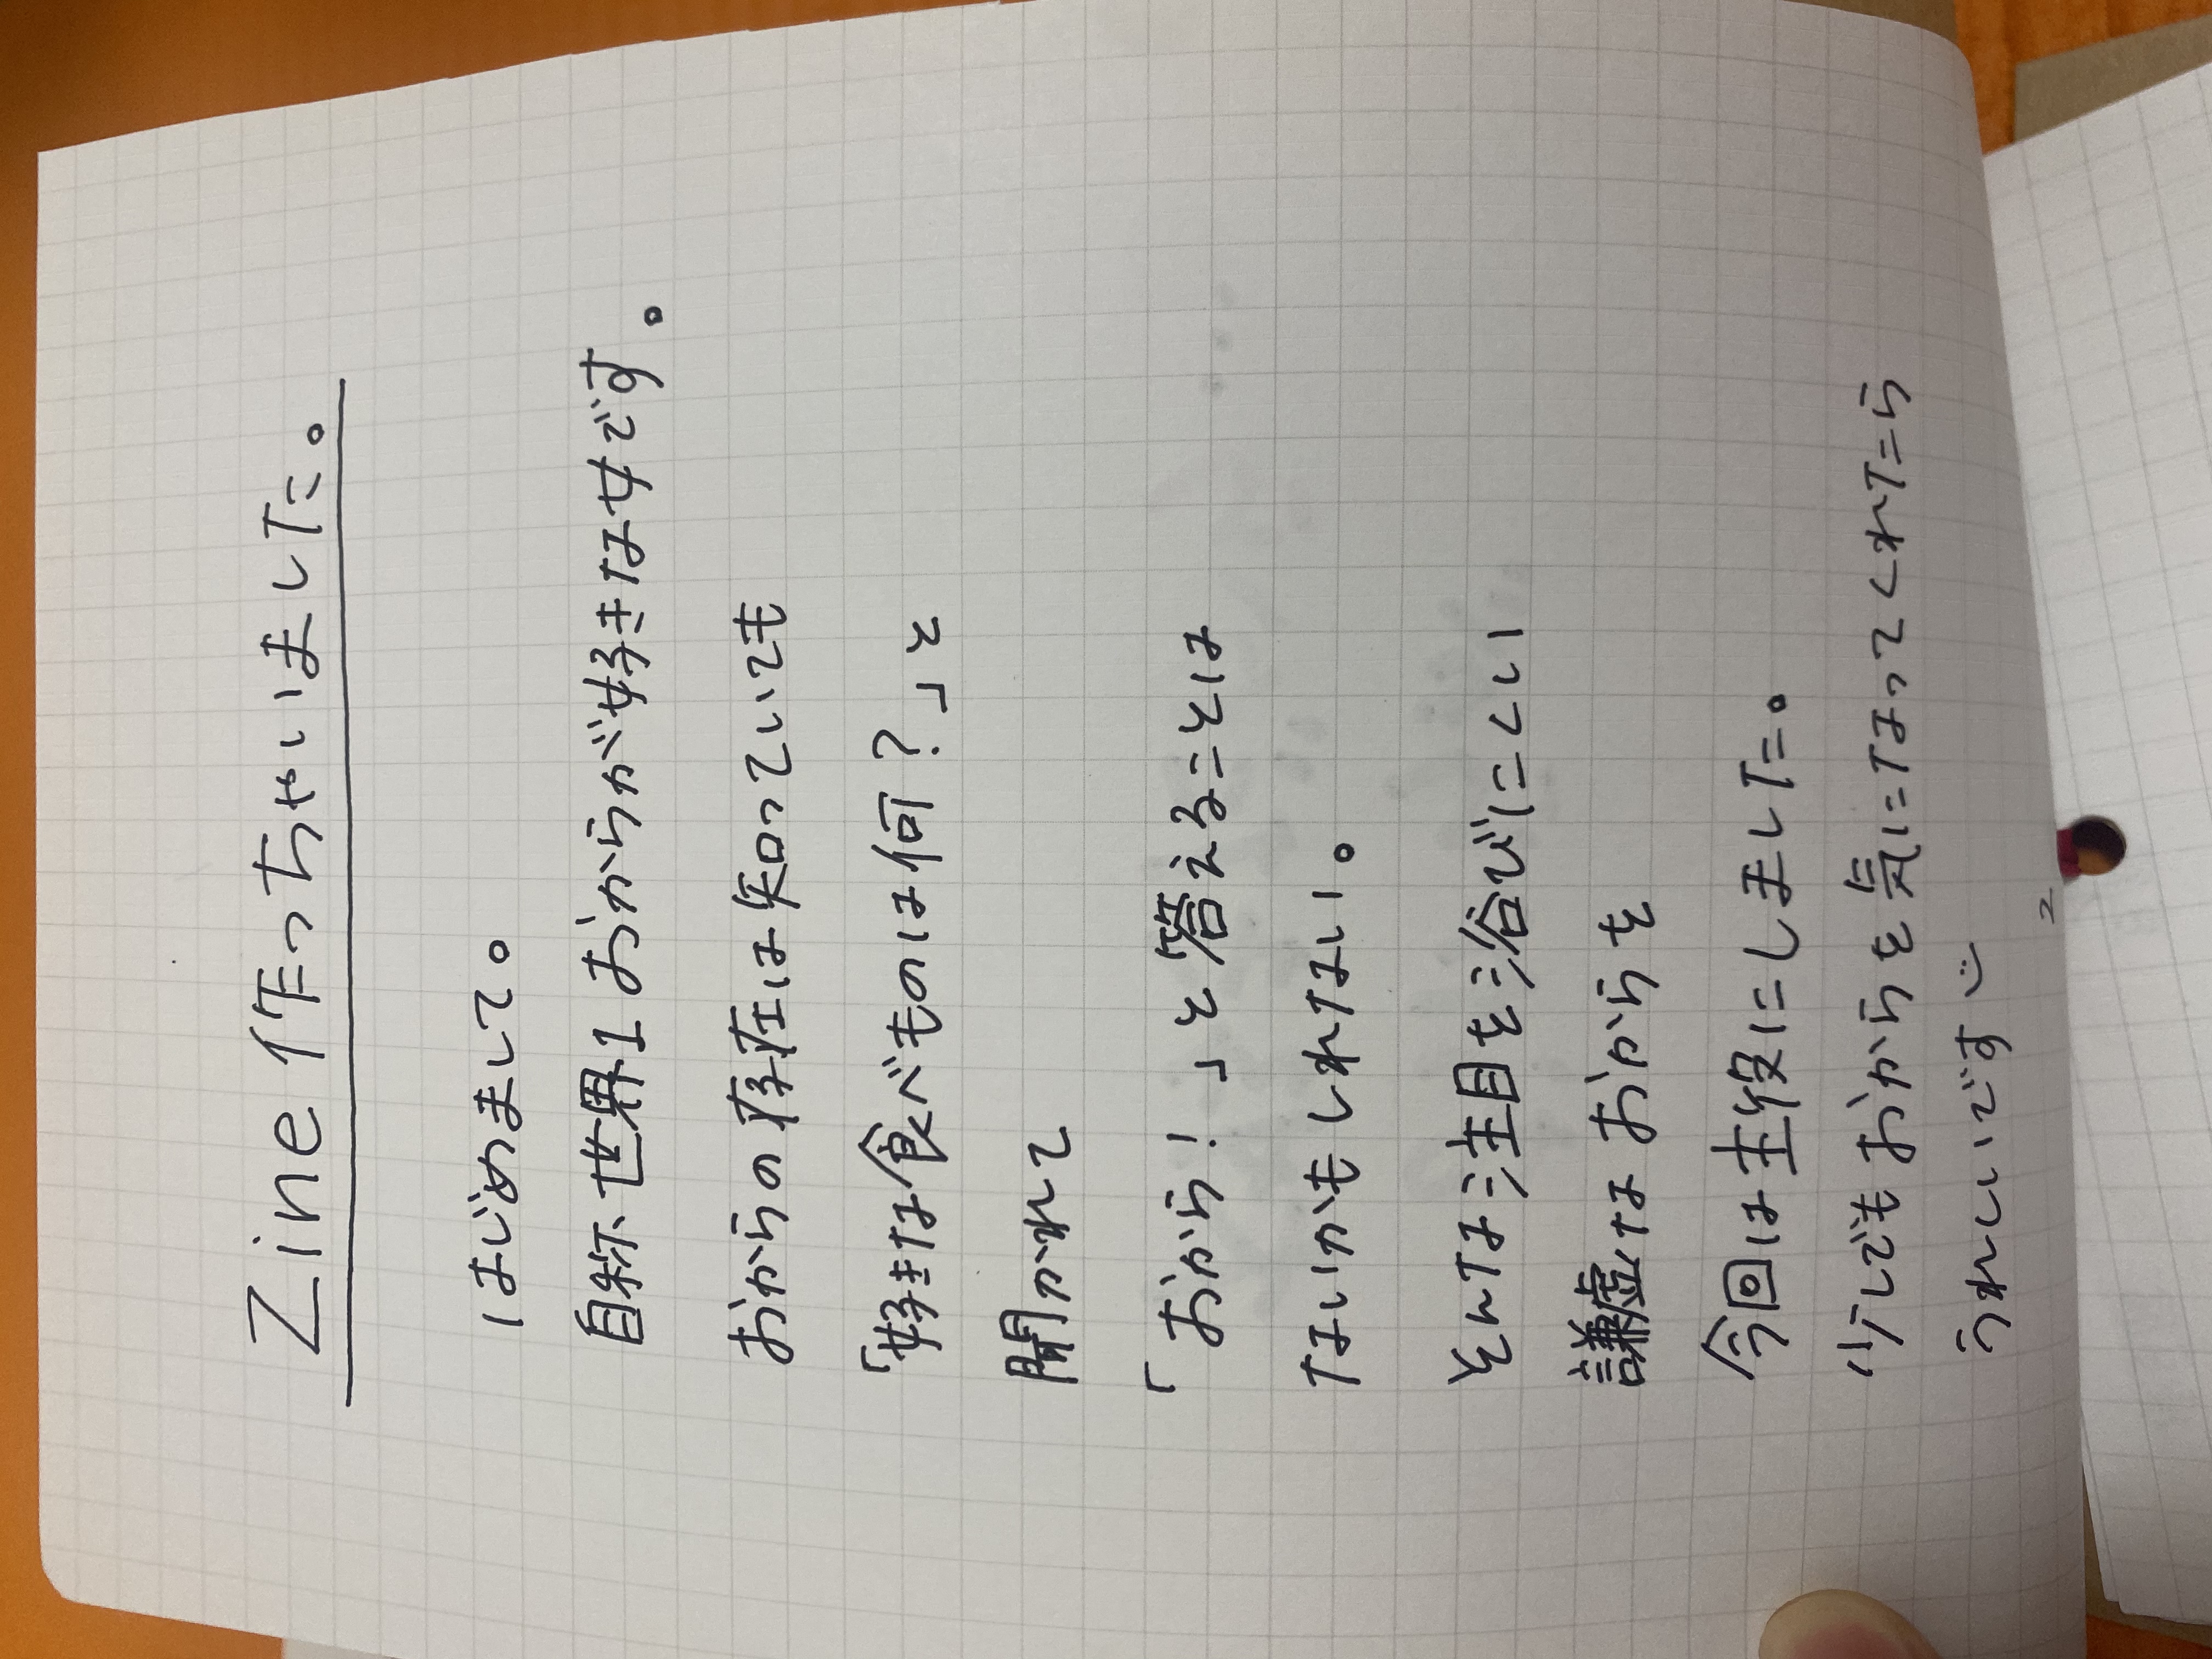 Zine 作っちゃいました。
はじめまして。
自称 世界1 おからが好きな女です。
おからの存在は知っていても
「好きな食べものは何?」と
聞かれて
「おから!」と答えることは
ないかもしれない。
そんな注目を浴びにくい
謙虚な おからを
今回は主役にしました。
少しでもおからを気になってくれたら
うれしいです
2